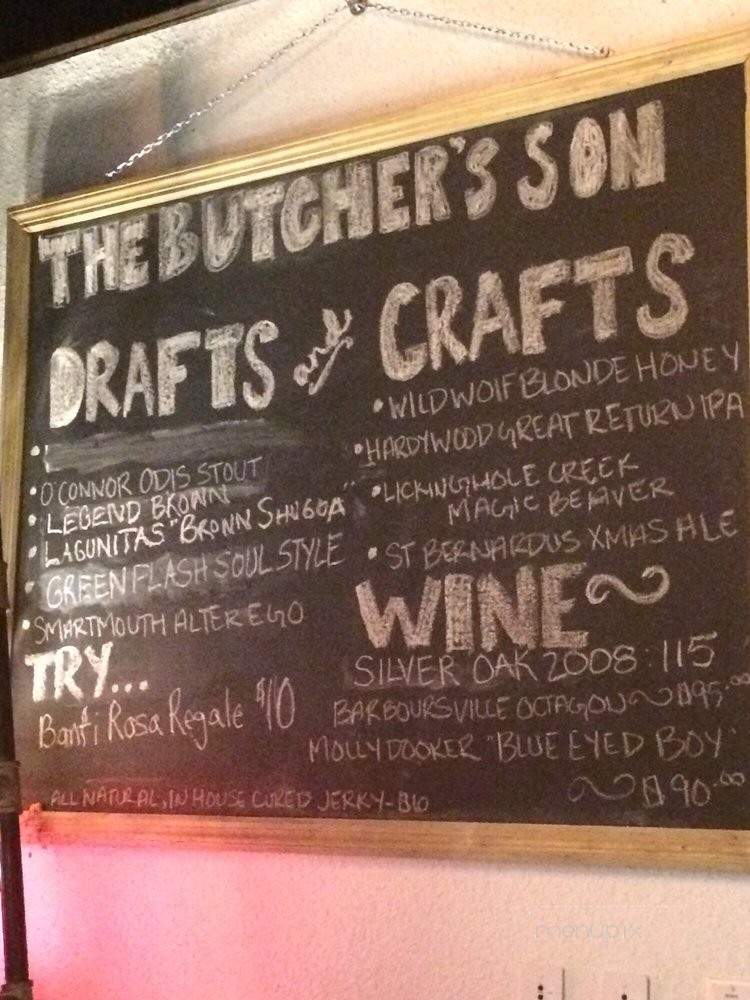 THE BUTCHER'S SON
DRAFTS and CRAFTS
• O'CONNOR ODIS STOUT
• LEGEND BROWN
• LAGUNITAS "BROWN SHUGGA"
• GREEN FLASH SOUL STYLE
• SMARTMOUTH ALTER EGO
TRY...
Banfi Rosa Regale $10
ALL NATURAL, IN HOUSE CURED JERKY-$10
• WILD WOLF BLONDE HONEY
• HARDYWOOD GREAT RETURN IPA
• LICKINGHOLE CREEK
MAGIC BEAVER
• ST BERNARDUS XMAS ALE
WINE~
SILVER OAK 2008: 115
BARBOURSVILLE OCTAGON ~ $95.00
MOLLY DOOKER "BLUE EYED BOY"
~ $90.00
menupix